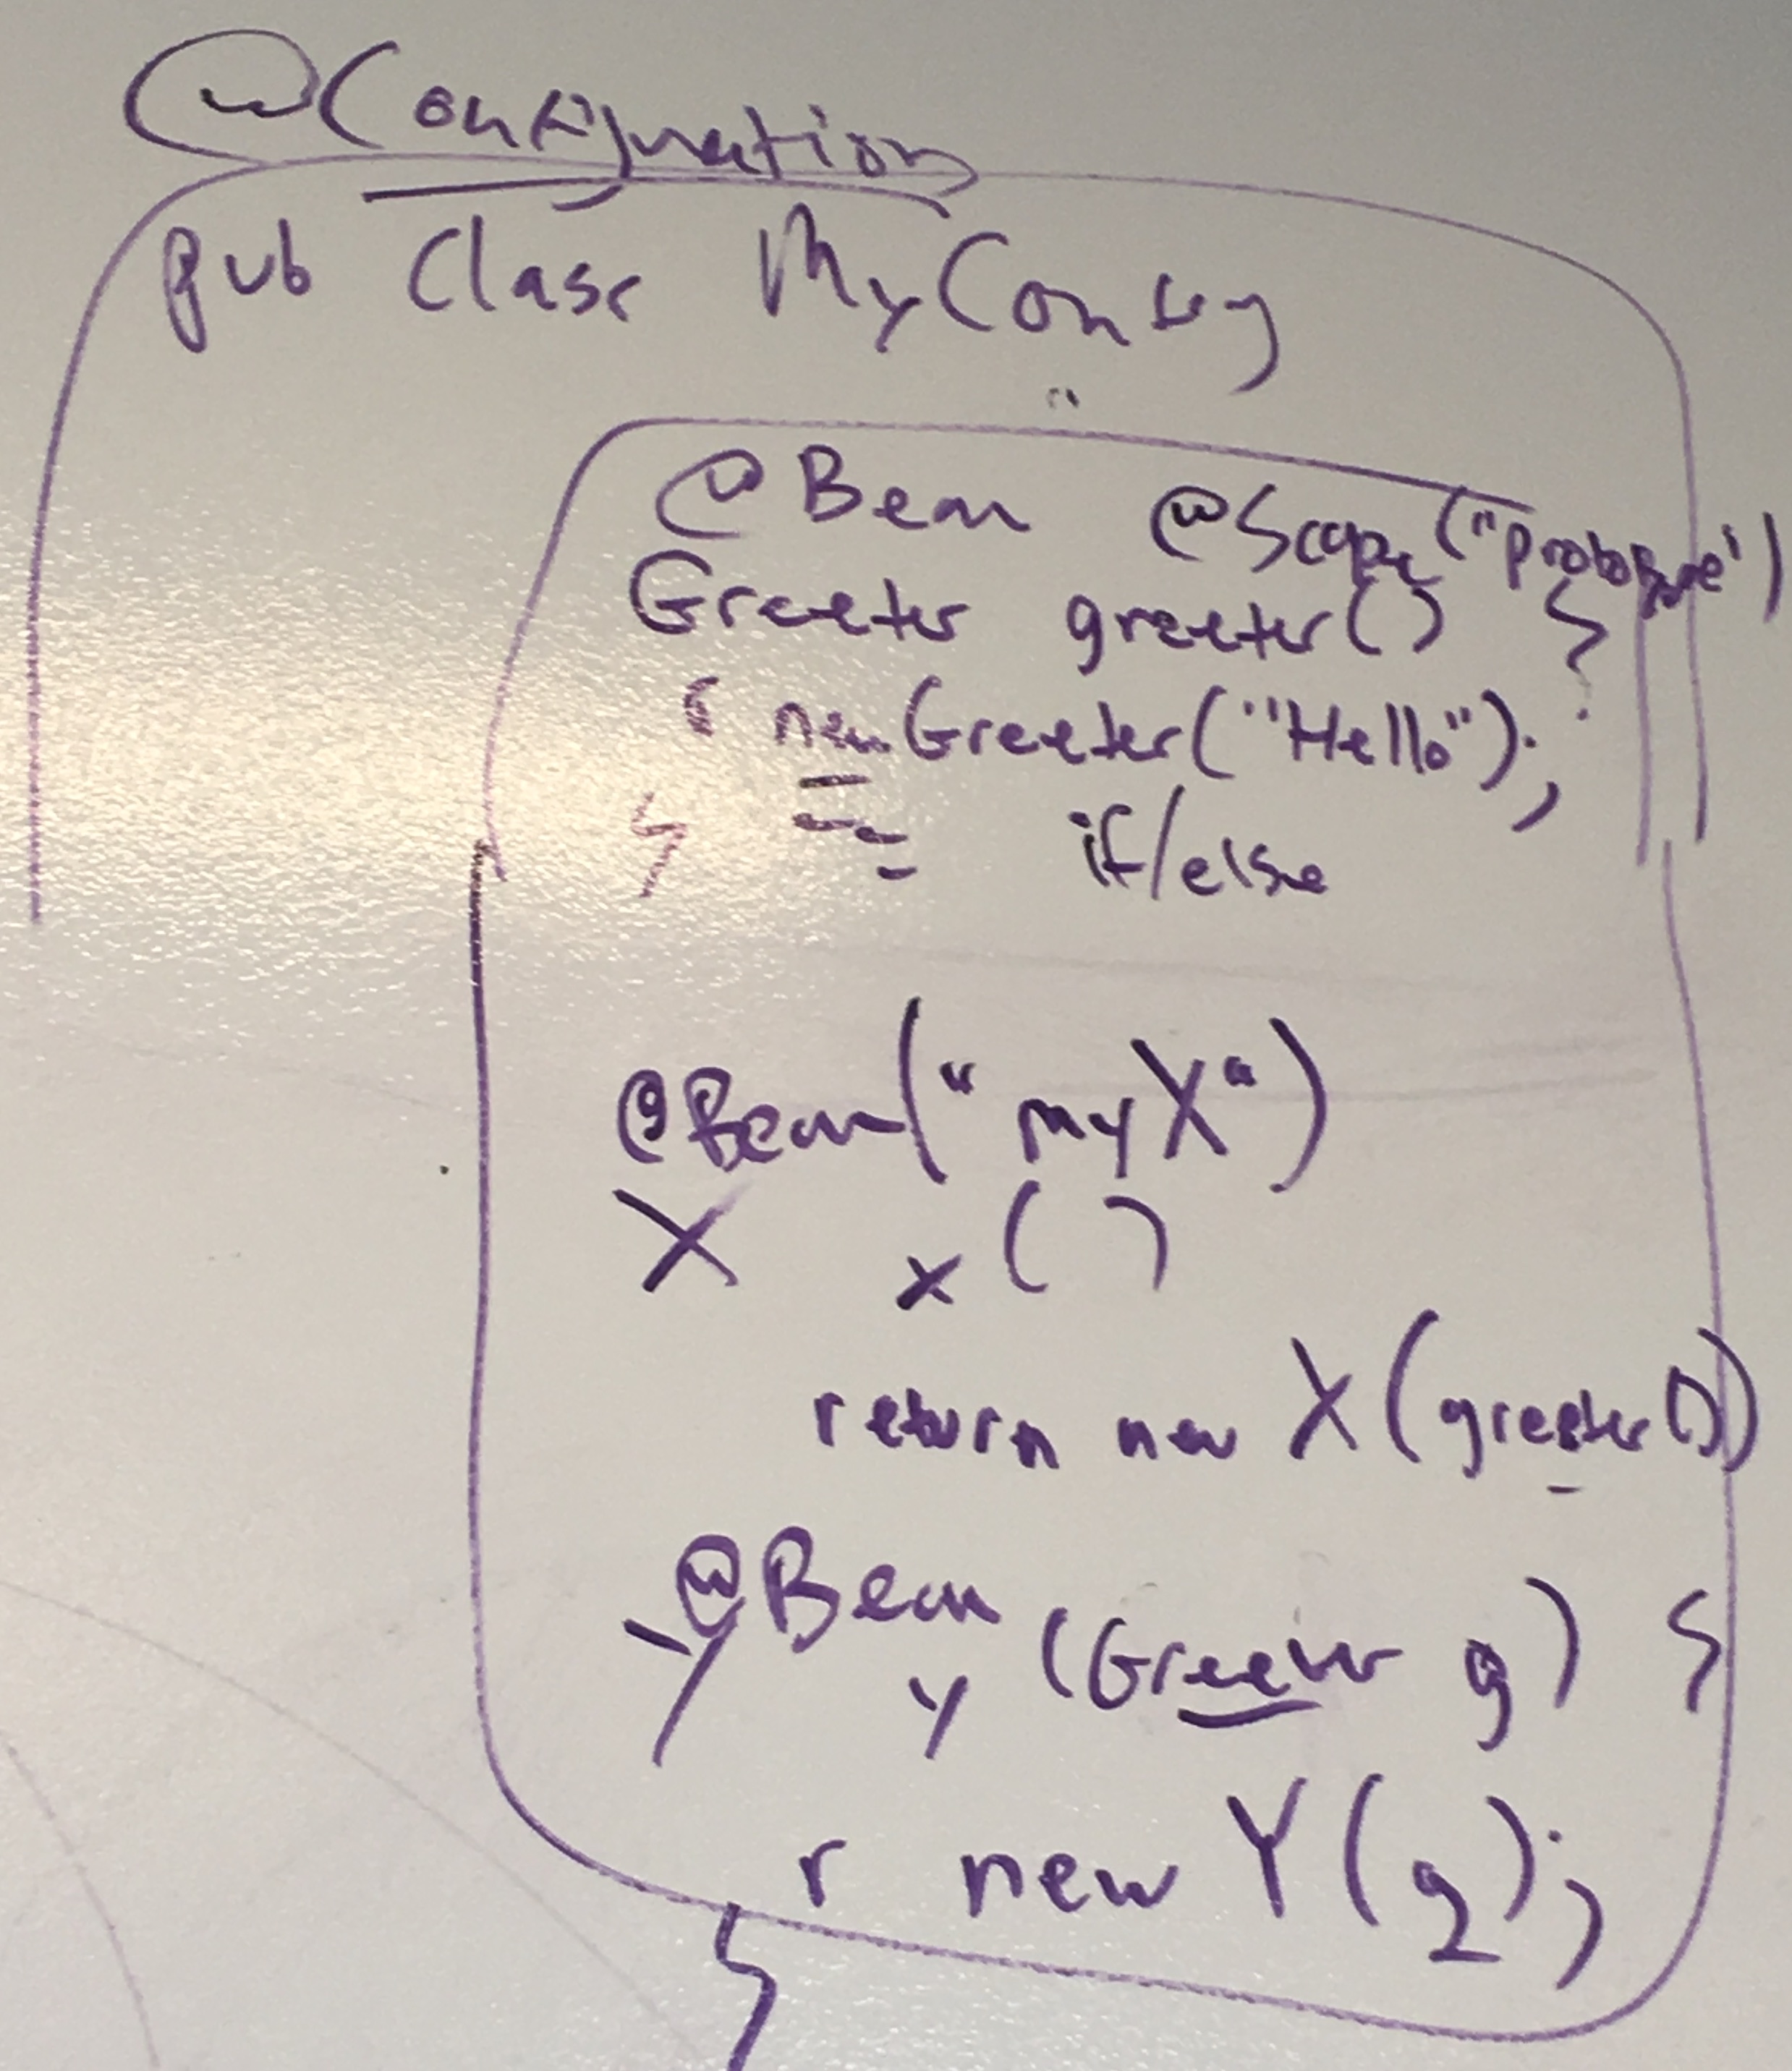 @Configuration
pub class MyConfig
@Bean @Scope("Prototype")
Greeter greeter() {
r new Greeter("Hello");
} if/else
@Bean("myX")
X x()
return new X(greeter())
@Bean
Y y (Greeter g) {
r new Y(g);
}